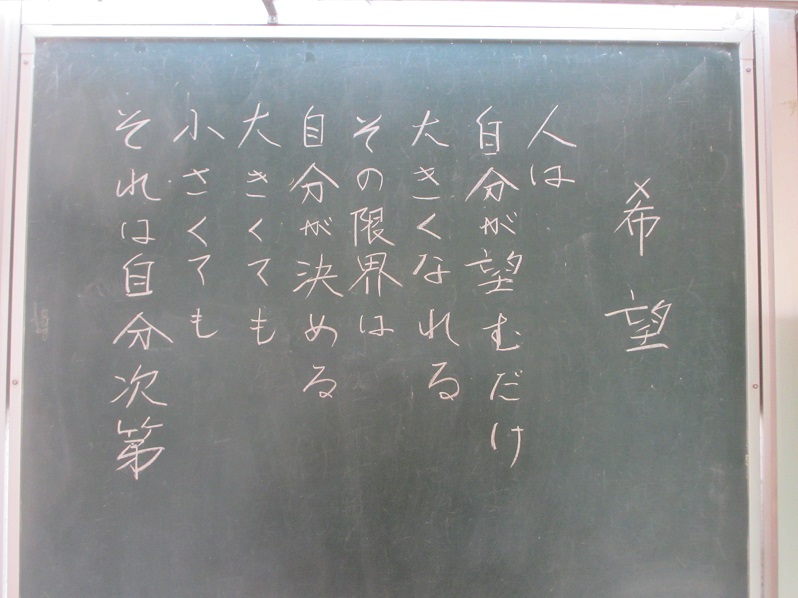 希望
人は
自分が望むだけ
大きくなれる
その限界は
自分が決める
大きくても
小さくても
それは自分次第